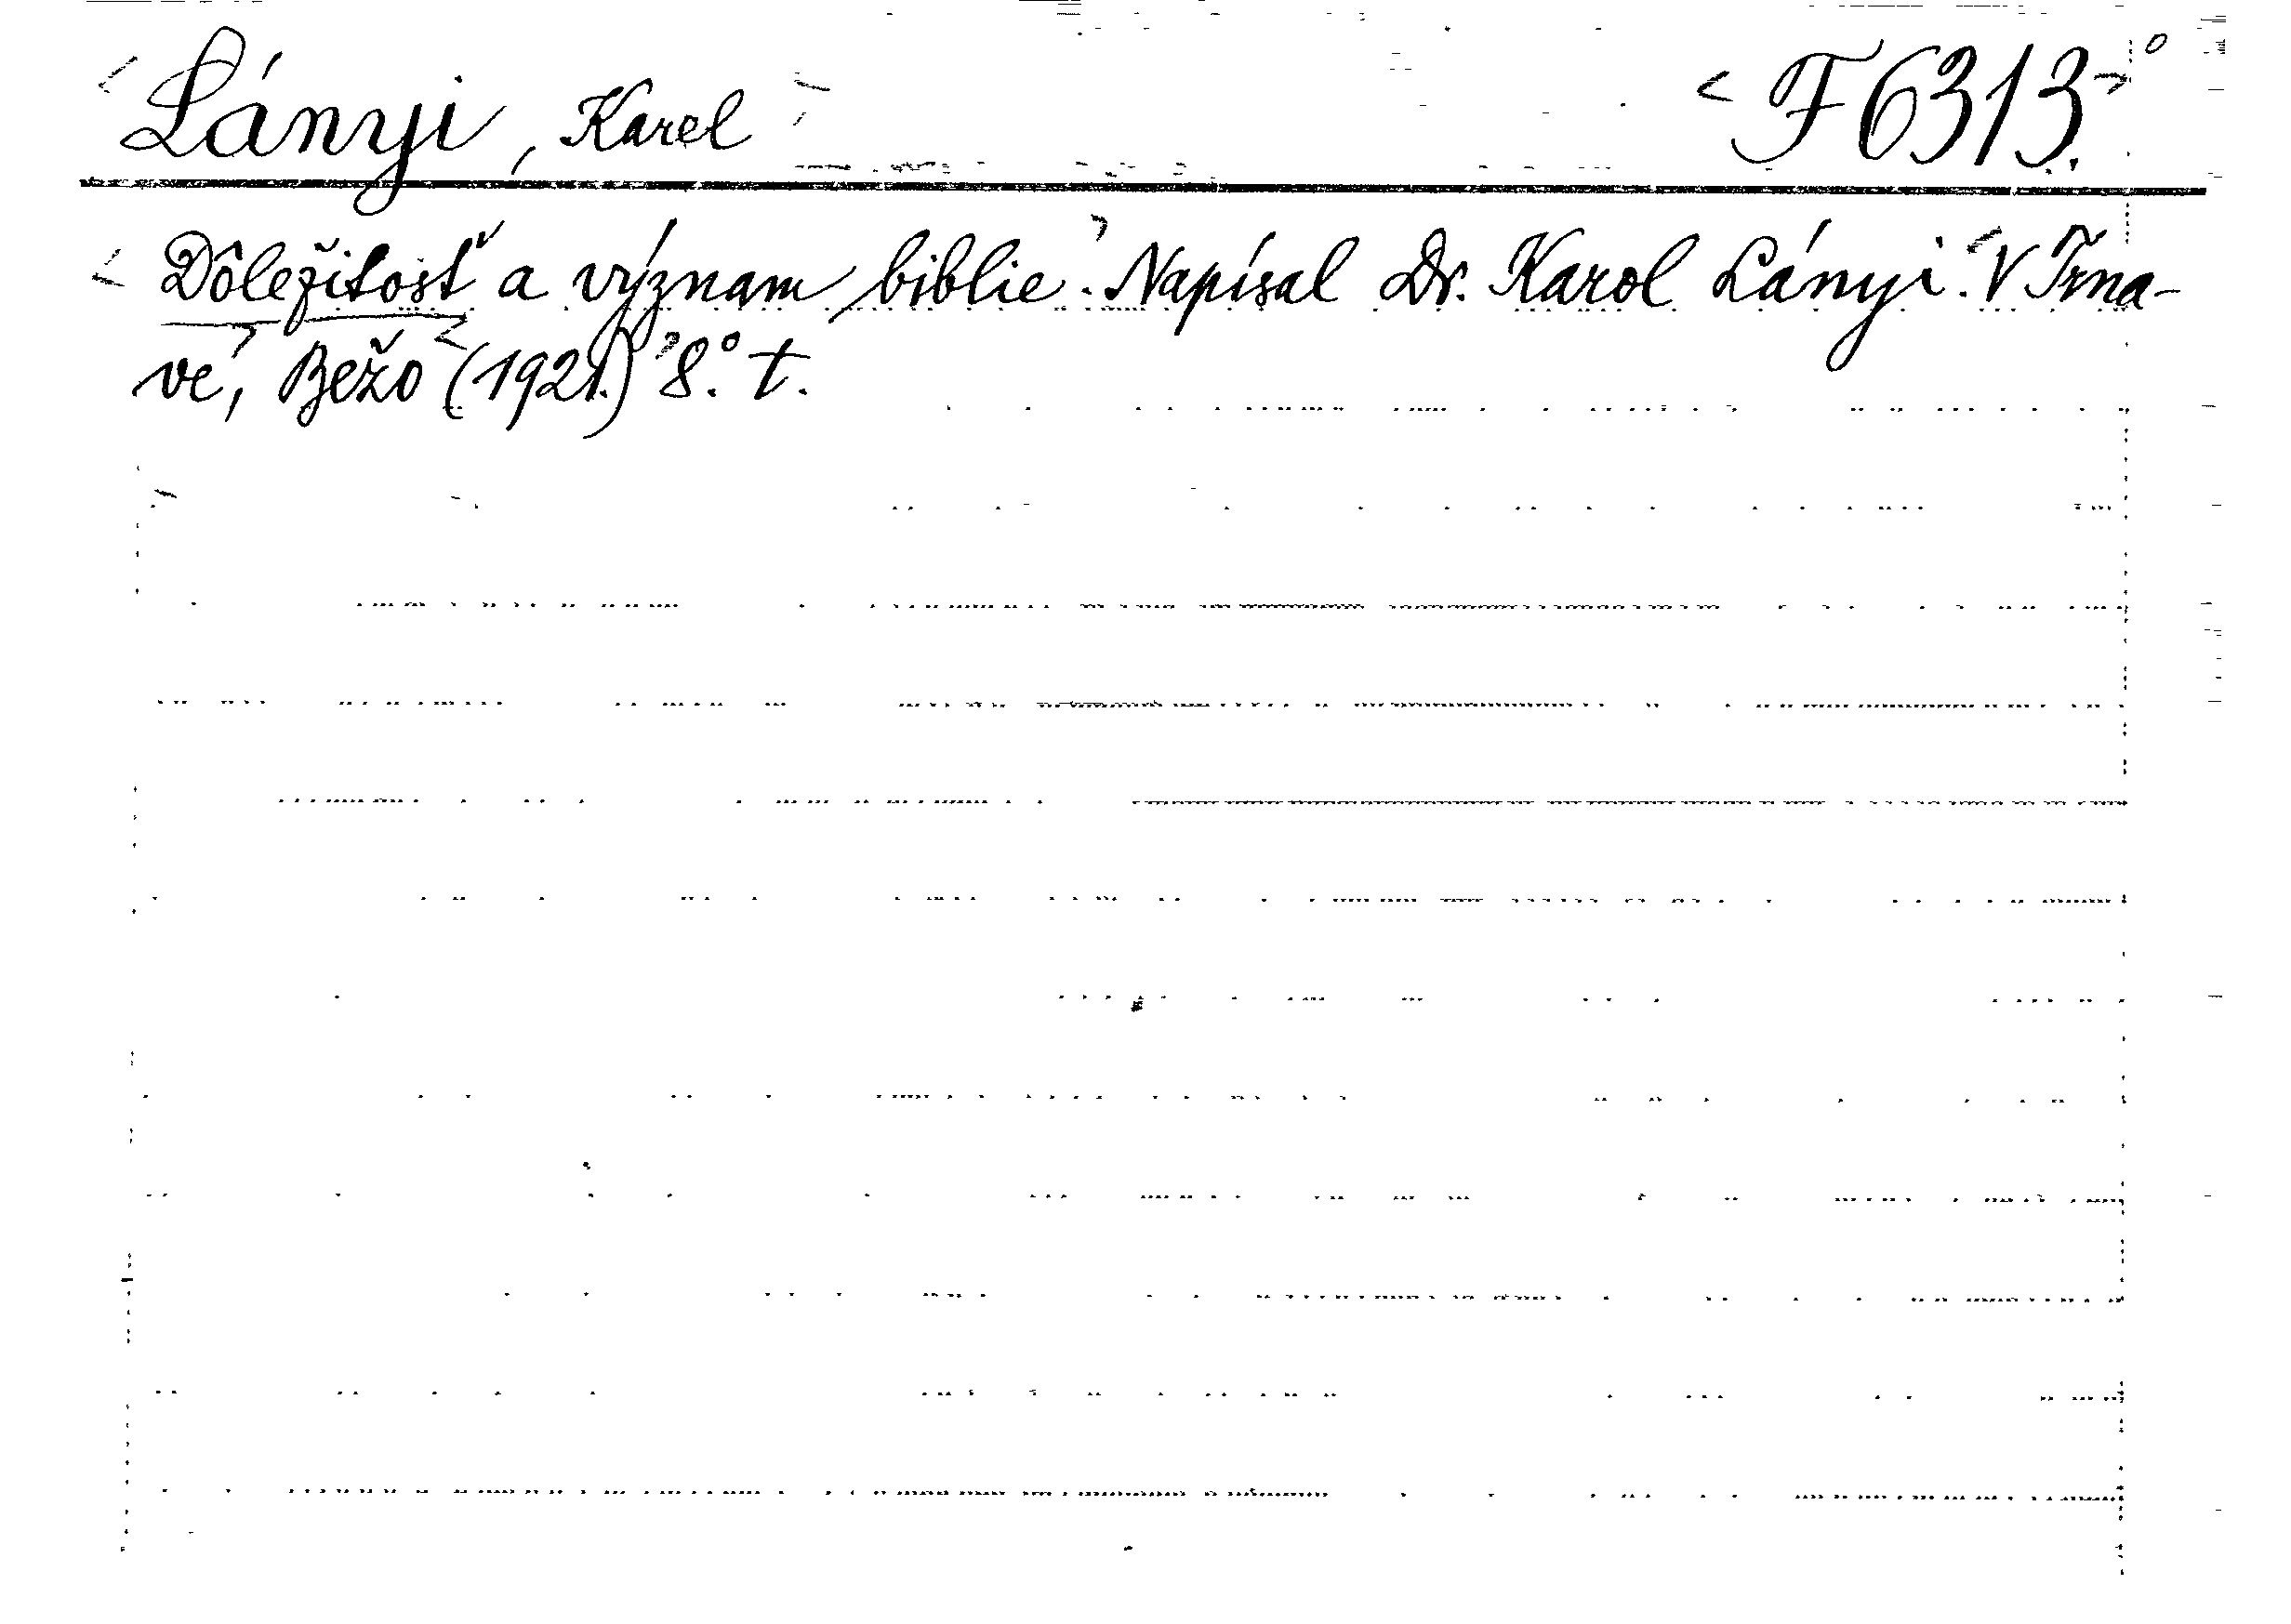 Lányi, Karel F 6313.
Dôležitosť a význam biblie. Napísal Dr. Karol Lányi. V Trna-
ve, Bežo (1921.) 8.° t.